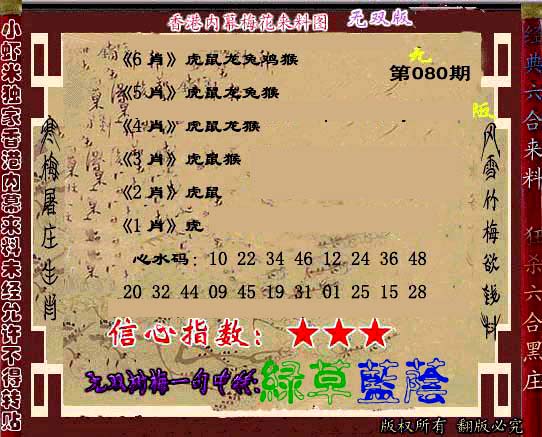 香港内幕梅花来料图 无双版
小虾米独家香港内幕来料未经允许不得转贴
经典六合来料 狂杀六合黑庄
第080期
寒梅屠庄生肖
风雪竹梅欲钱料
《6 肖》虎鼠龙兔鸡猴
《5 肖》虎鼠龙兔猴
《4 肖》虎鼠龙猴
《3 肖》虎鼠猴
《2 肖》虎鼠
《1 肖》虎
心水码：10 22 34 46 12 24 36 48
20 32 44 09 45 19 31 01 25 15 28
信心指数：★★★
无双剑梅一句中特:綠草藍蔭
版权所有 翻版必究